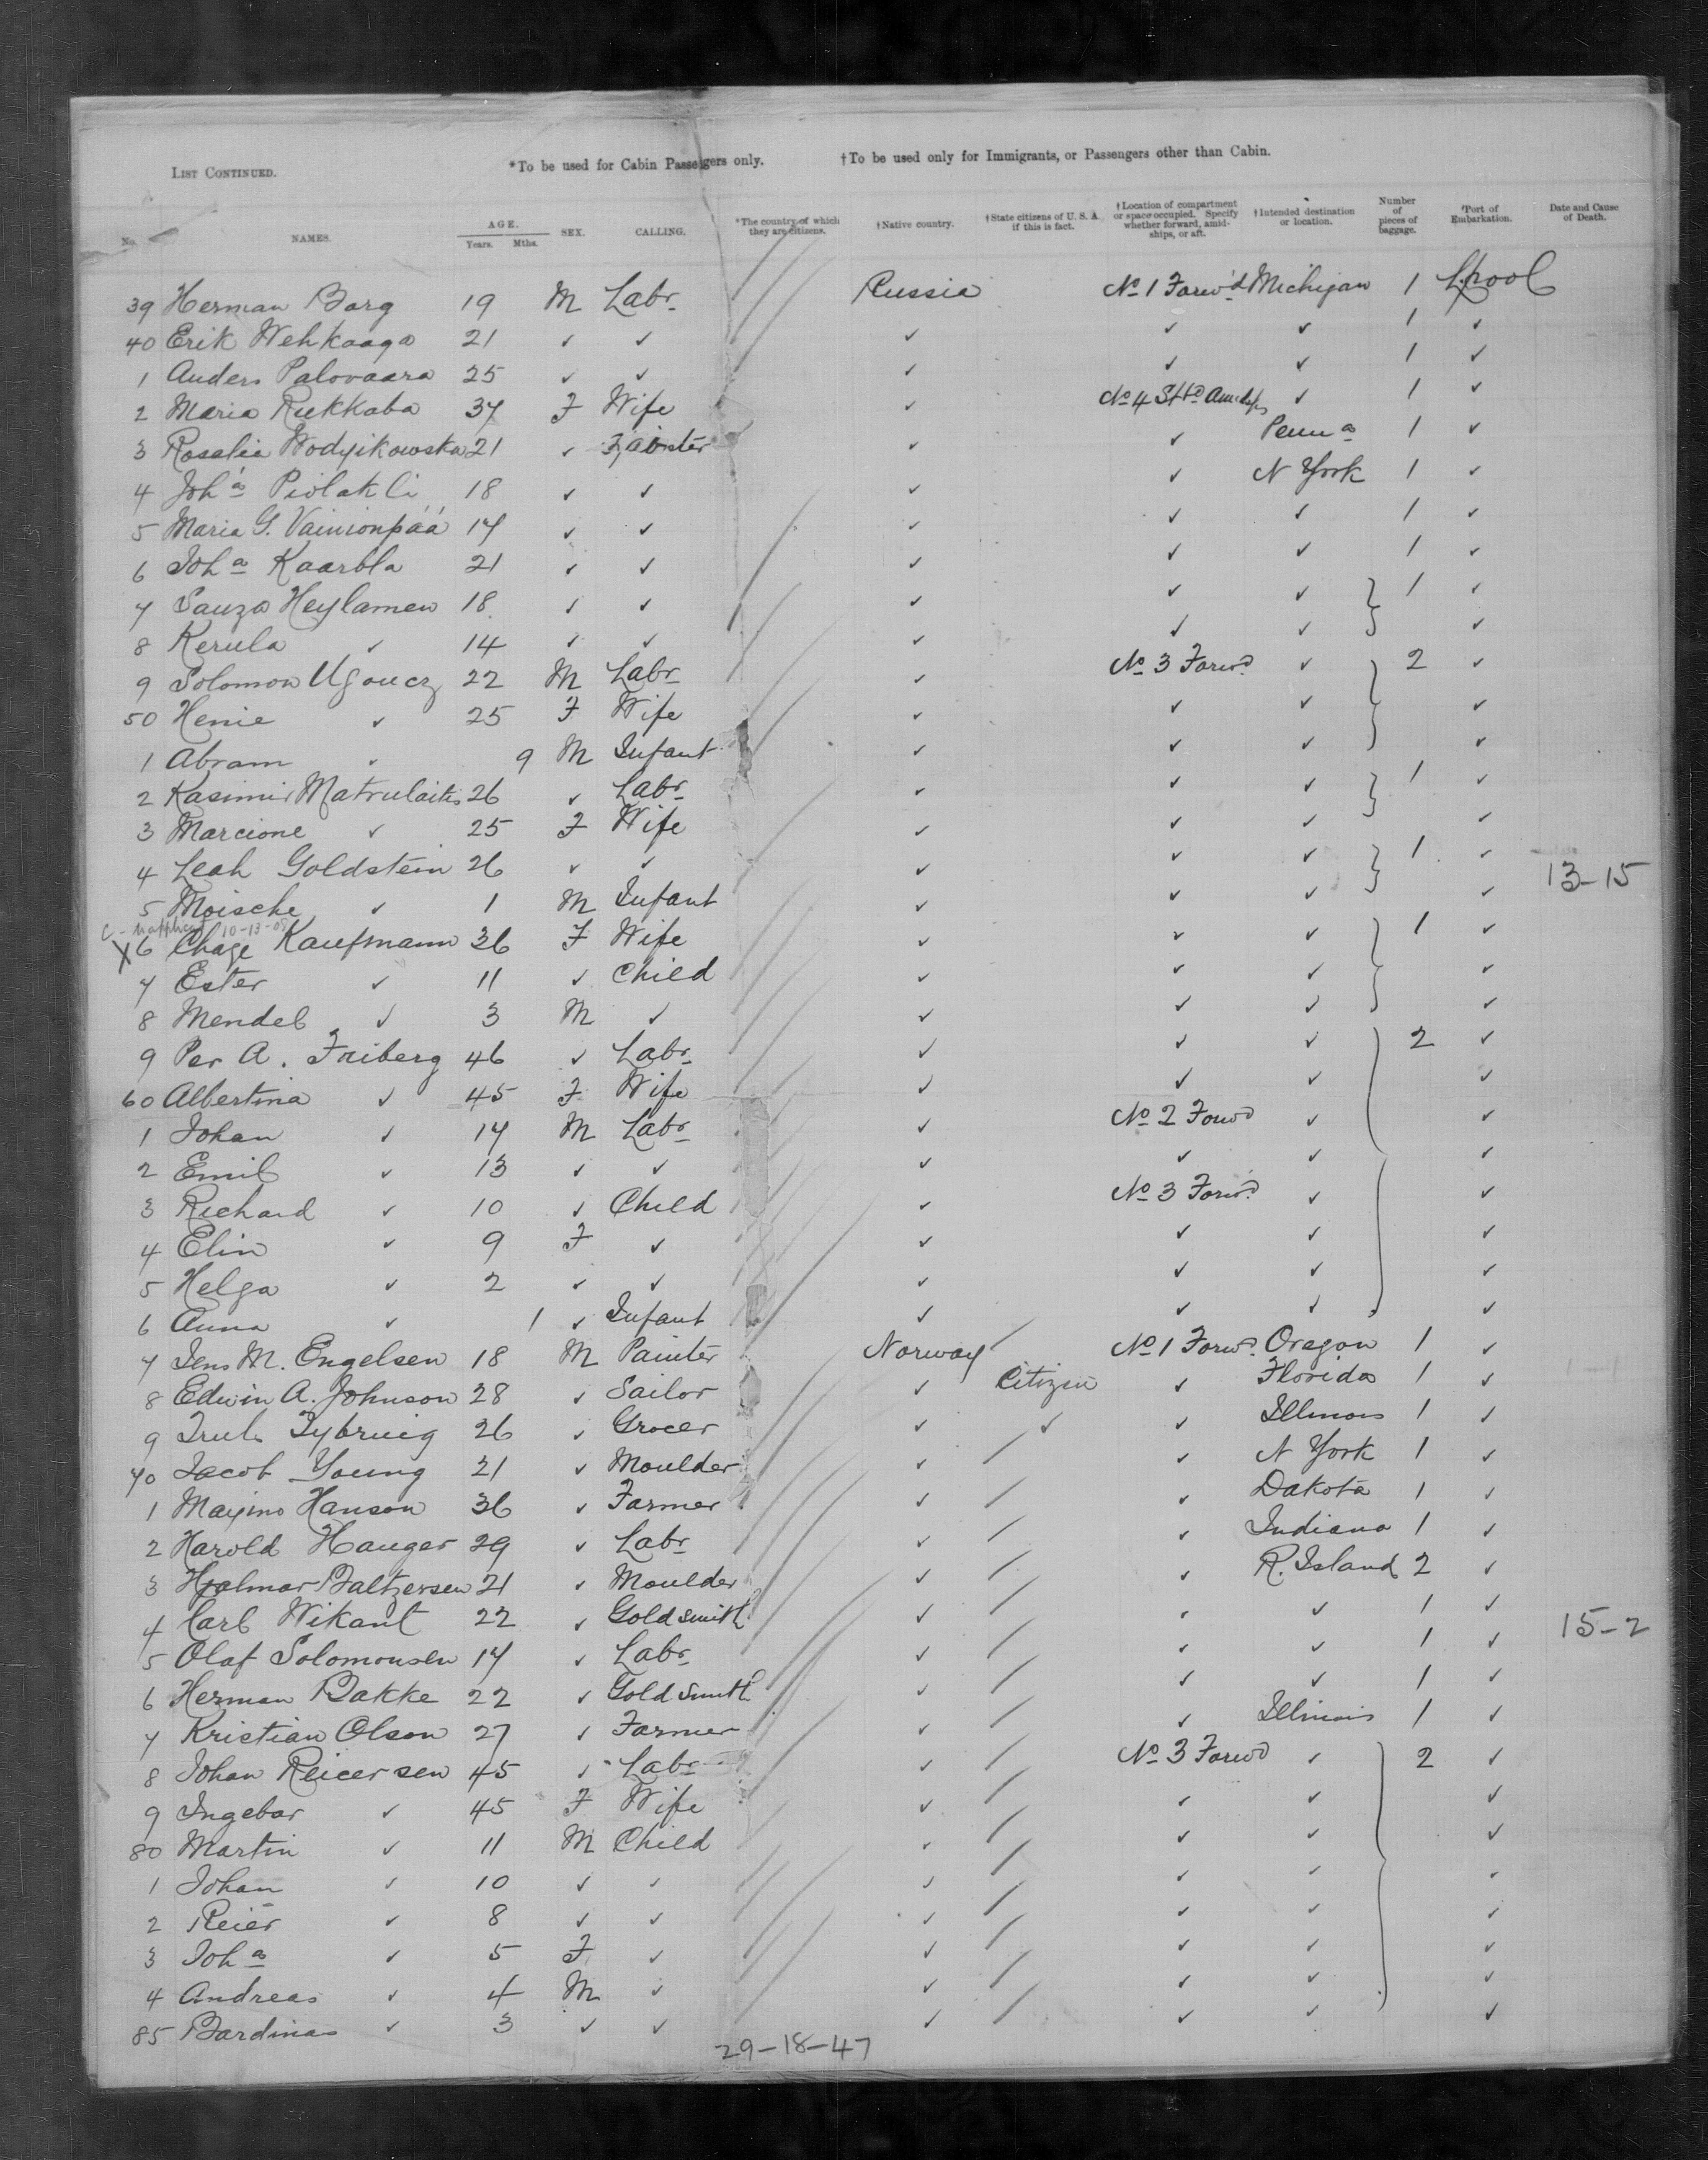 LIST CONTINUED. *To be used for Cabin Passengers only. †To be used only for Immigrants, or Passengers other than Cabin.
No. NAMES. AGE. Years. Mths. SEX. CALLING. *The country of which they are citizens. †Native country. †State citizens of U. S. A. if this is fact. †Location of compartment or space occupied. Specify whether forward, amidships, or aft. †Intended destination or location. Number of pieces of baggage. †Port of Embarkation. Date and Cause of Death.
39 Herman Borg 19 M Labr Russia No 1 Forw'd Michigan 1 L'pool
40 Erik Wehkaaga 21 ✓ ✓ ✓ ✓ ✓ 1 ✓
1 Anders Palovaara 25 ✓ ✓ ✓ ✓ ✓ 1 ✓
2 Maria Rukkaba 37 F Wife ✓ No 4 ✓ 1 ✓
3 Rosalia Wodyikowska 21 ✓ ✓ ✓ Penna 1 ✓
4 Joha Piolakli 18 ✓ ✓ ✓ ✓ N York 1 ✓
5 Maria G. Vainionpää 17 ✓ ✓ ✓ ✓ ✓ 1 ✓
6 Joha Kaarbla 21 ✓ ✓ ✓ ✓ ✓ 1 ✓
7 Sauza Heylamen 18 ✓ ✓ ✓ ✓ ✓ 1 ✓
8 Kerula ✓ 14 ✓ ✓ ✓ ✓ ✓ ✓
9 Solomon Ugoucz 22 M Labr ✓ No 3 Forwd ✓ 2 ✓
50 Henie ✓ 25 F Wife ✓ ✓ ✓ ✓
1 Abram ✓ 9 M Infant ✓ ✓ ✓ ✓
2 Kasimir Matrulaitis 26 ✓ Labr ✓ ✓ ✓ 1 ✓
3 Marcione ✓ 25 F Wife ✓ ✓ ✓ ✓
4 Leah Goldstein 26 ✓ ✓ ✓ ✓ ✓ 1 ✓ 13-15
5 Moische ✓ 1 M Infant ✓ ✓ ✓ ✓
10-13-08
X 6 Chage Kaufmann 36 F Wife ✓ ✓ ✓ 1 ✓
7 Ester ✓ 11 ✓ Child ✓ ✓ ✓ ✓
8 Mendel ✓ 3 M ✓ ✓ ✓ ✓ ✓
9 Per A. Friberg 46 ✓ Labr ✓ ✓ ✓ 2 ✓
60 Albertina ✓ 45 F Wife ✓ ✓ ✓ ✓
1 Johan ✓ 17 M Labr ✓ No 2 Forwd ✓ ✓
2 Emil ✓ 13 ✓ ✓ ✓ ✓ ✓ ✓
3 Richard ✓ 10 ✓ Child ✓ No 3 Forwd ✓ ✓
4 Elin ✓ 9 F ✓ ✓ ✓ ✓ ✓
5 Helga ✓ 2 ✓ ✓ ✓ ✓ ✓ ✓
6 Anna ✓ 1 ✓ Infant ✓ ✓ ✓ ✓
7 Jens M. Engelsen 18 M Painter Norway No 1 Forwd. Oregon 1 ✓
8 Edwin A. Johnson 28 ✓ Sailor ✓ Citizen ✓ Florida 1 ✓
9 Truls Tybring 26 ✓ Grocer ✓ ✓ ✓ Illinois 1 ✓
70 Jacob Young 21 ✓ Moulder ✓ ✓ N York 1 ✓
1 Maximo Hanson 36 ✓ Farmer ✓ ✓ Dakota 1 ✓
2 Harold Hauger 29 ✓ Labr ✓ ✓ Indiana 1 ✓
3 Hjalmar Baltzersen 21 ✓ Moulder ✓ ✓ R. Island 2 ✓
4 Carl Wikant 22 ✓ Goldsmith ✓ ✓ ✓ 1 ✓ 15-2
5 Olaf Solomonsen 17 ✓ Labr ✓ ✓ ✓ 1 ✓
6 Herman Bakke 22 ✓ Goldsmith ✓ ✓ ✓ 1 ✓
7 Kristian Olson 27 ✓ Farmer ✓ ✓ Illinois 1 ✓
8 Johan Reicersen 45 ✓ Labr ✓ No 3 Forwd ✓ 2 ✓
9 Ingebor ✓ 45 F Wife ✓ ✓ ✓ ✓
80 Martin ✓ 11 M Child ✓ ✓ ✓ ✓
1 Johan ✓ 10 ✓ ✓ ✓ ✓ ✓ ✓
2 Reier ✓ 8 ✓ ✓ ✓ ✓ ✓ ✓
3 Joha ✓ 5 F ✓ ✓ ✓ ✓ ✓
4 Andreas ✓ 4 M ✓ ✓ ✓ ✓ ✓
85 Bardinas ✓ 3 ✓ ✓ ✓ ✓ ✓ ✓
29-18-47